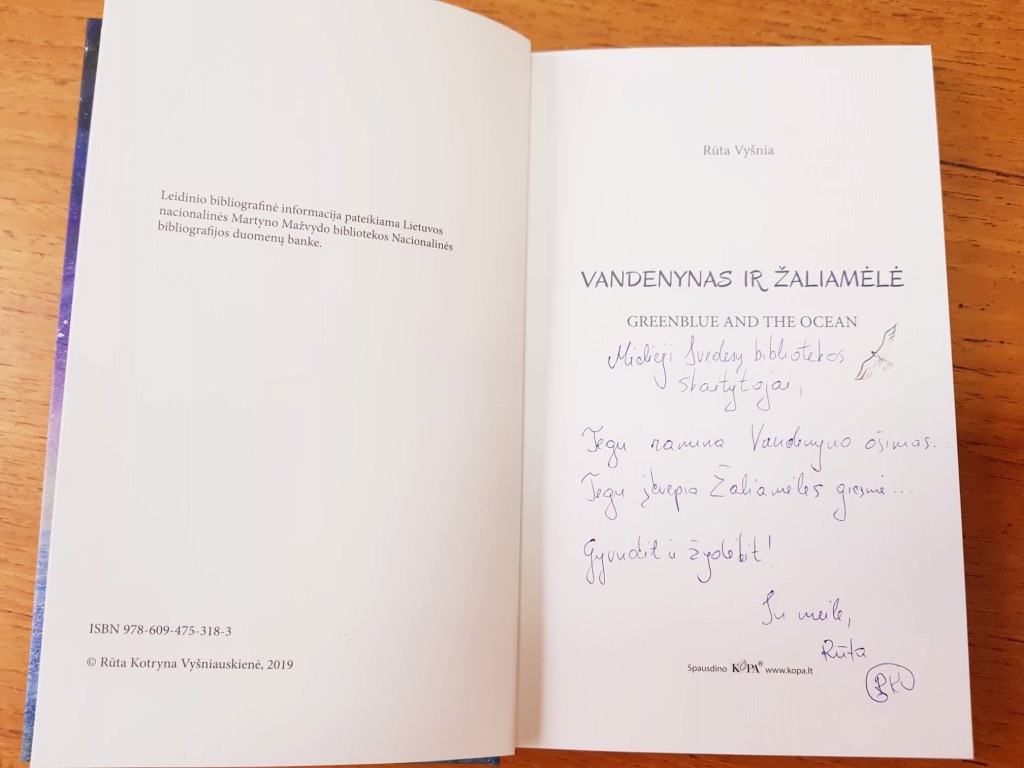 Leidinio bibliografinė informacija pateikiama Lietuvos
nacionalinės Martyno Mažvydo bibliotekos Nacionalinės
bibliografijos duomenų banke.
ISBN 978-609-475-318-3
© Rūta Kotryna Vyšniauskienė, 2019
Rūta Vyšnia
VANDENYNAS IR ŽALIAMĖLĖ
GREENBLUE AND THE OCEAN
Mielieji Svėdasų bibliotekos
skaitytojai,
Tegu ramina Vandenyno ošimas...
Tegu įkvepia Žaliamėlės giesmė...
Gyvuokit ir žydėkit!
Su meile,
Rūta
Spausdino KOPA® www.kopa.lt